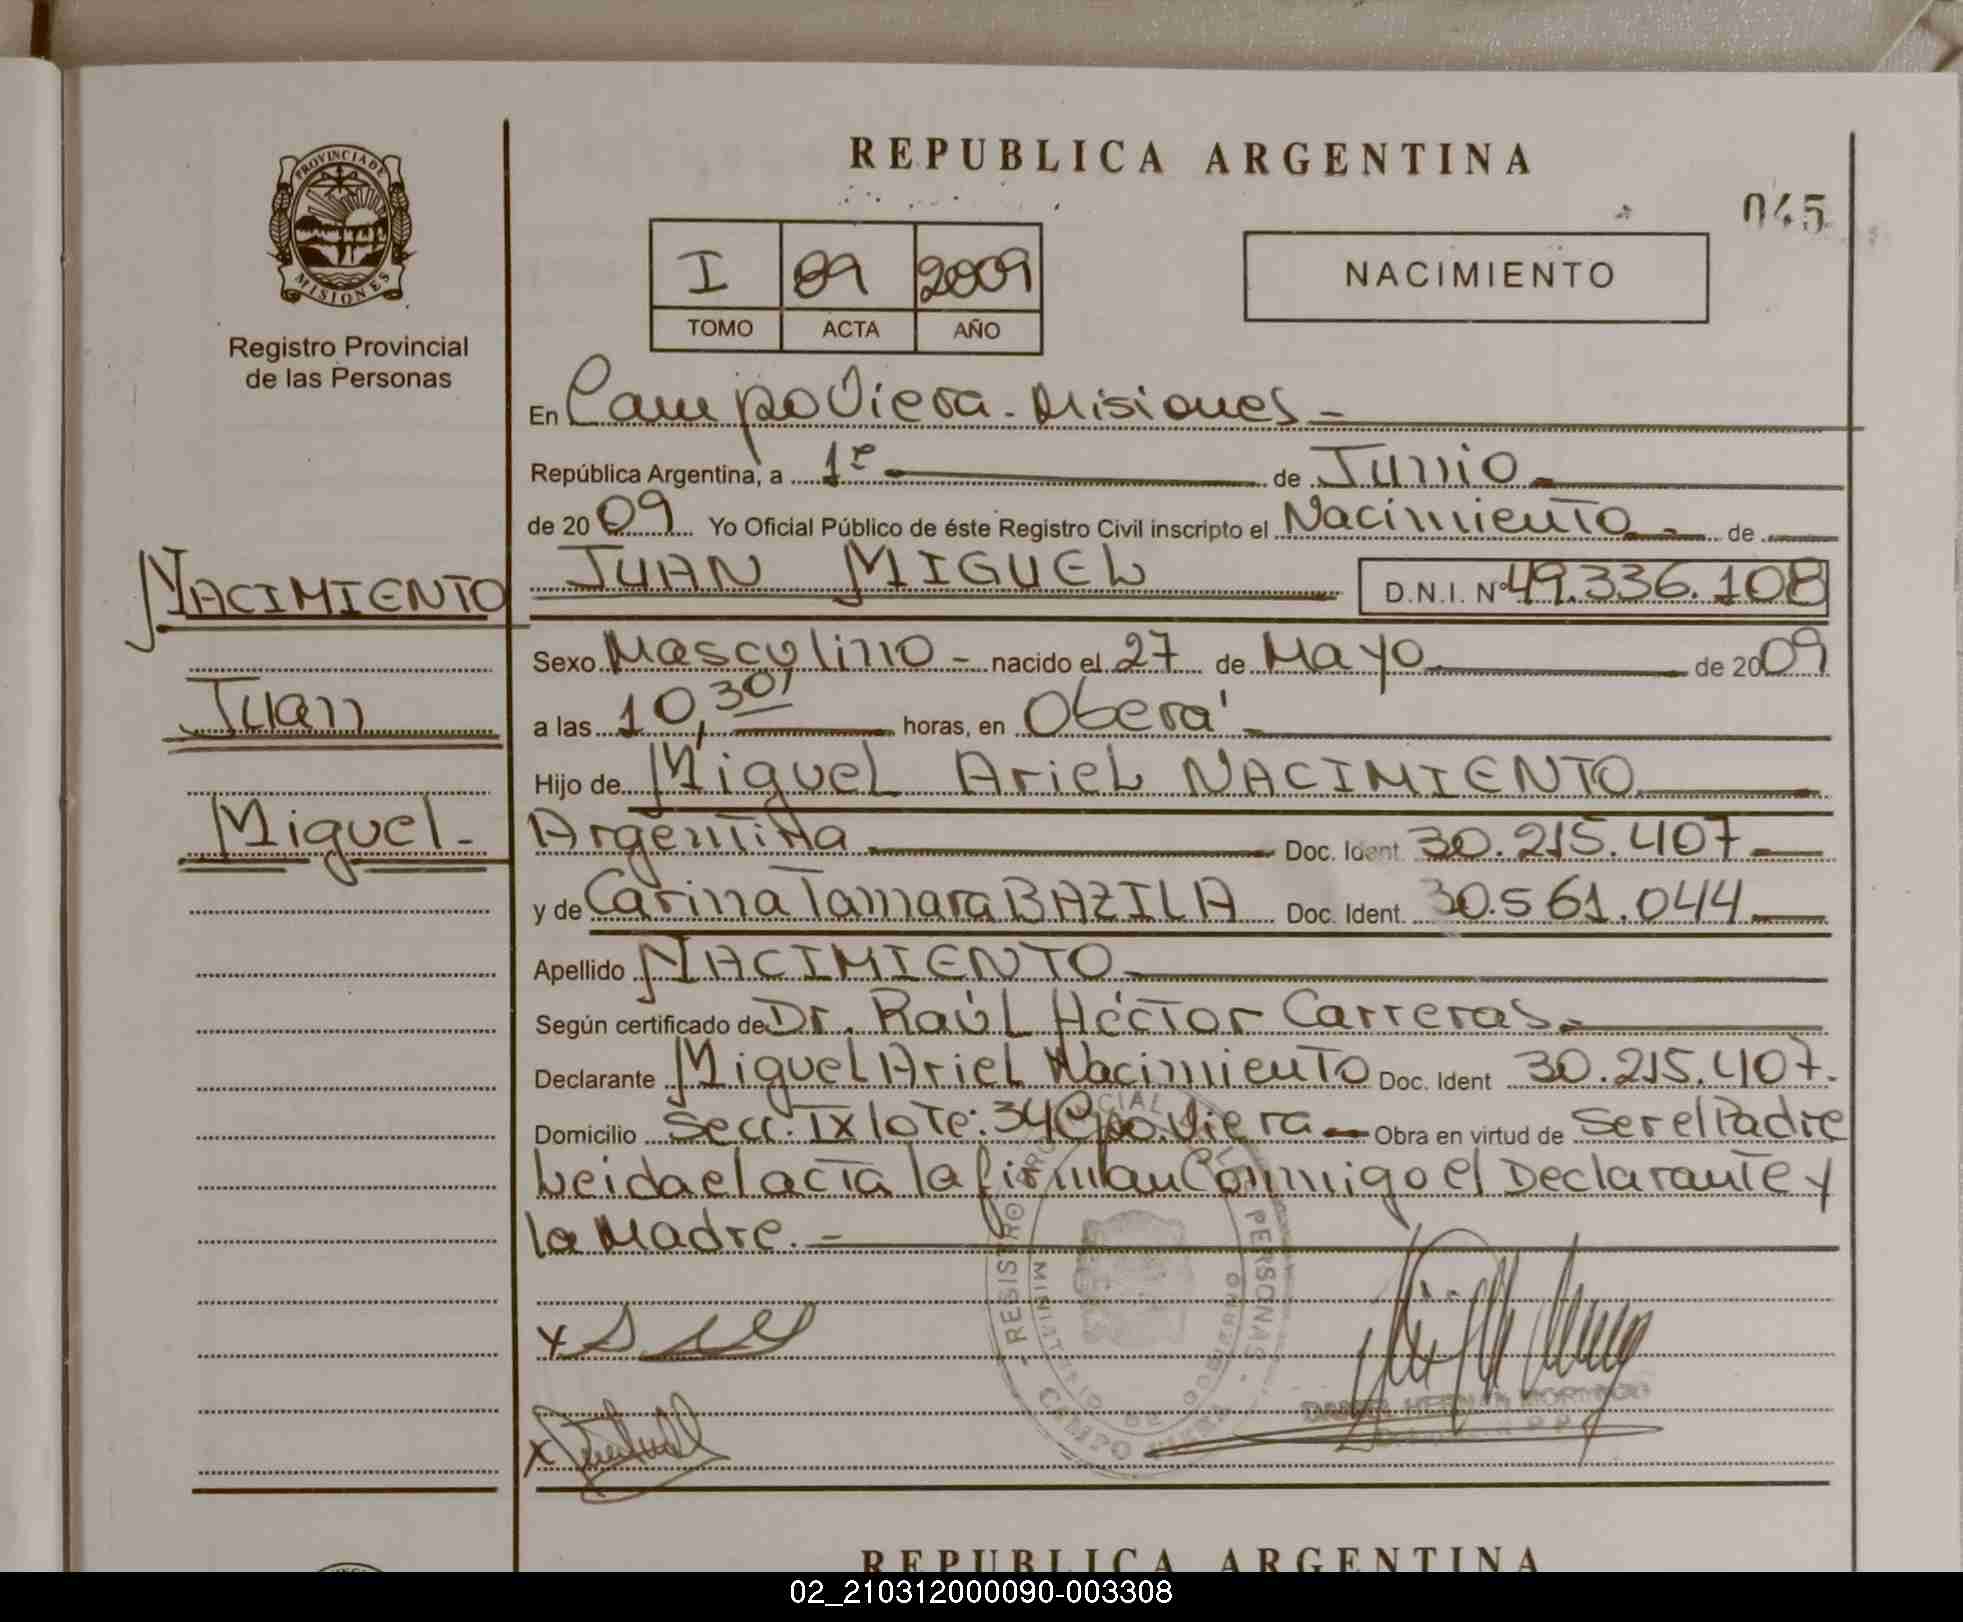 REPUBLICA ARGENTINA
045
PROVINCIA DE MISIONES
Registro Provincial
de las Personas
I 89 2009
TOMO ACTA AÑO
NACIMIENTO
En Campo Viera - Misiones -
República Argentina, a 1º de Junio
de 2009 Yo Oficial Público de éste Registro Civil inscripto el Nacimiento de
JUAN MIGUEL D.N.I. Nº 49.336.108
NACIMIENTO
Juan
Miguel -
Sexo Masculino - nacido el 27 de Mayo de 2009
a las 10,30 horas, en Oberá
Hijo de Miguel Ariel NACIMIENTO
Argentina Doc. Ident 30.215.407
y de Carina Tamara BAZILA Doc. Ident. 30.561.044
Apellido NACIMIENTO
Según certificado de Dr. Raúl Héctor Carreras.-
Declarante Miguel Ariel Nacimiento Doc. Ident 30.215.407.
Domicilio Secc. IX lote: 34 Cpo. Viera - Obra en virtud de Ser el Padre
Leida el acta la firman Conmigo el Declarante y
la Madre. -
x
x
REGISTRO PERSONAS
CAMPO VIERA
REPUBLICA ARGENTINA
02_210312000090-003308